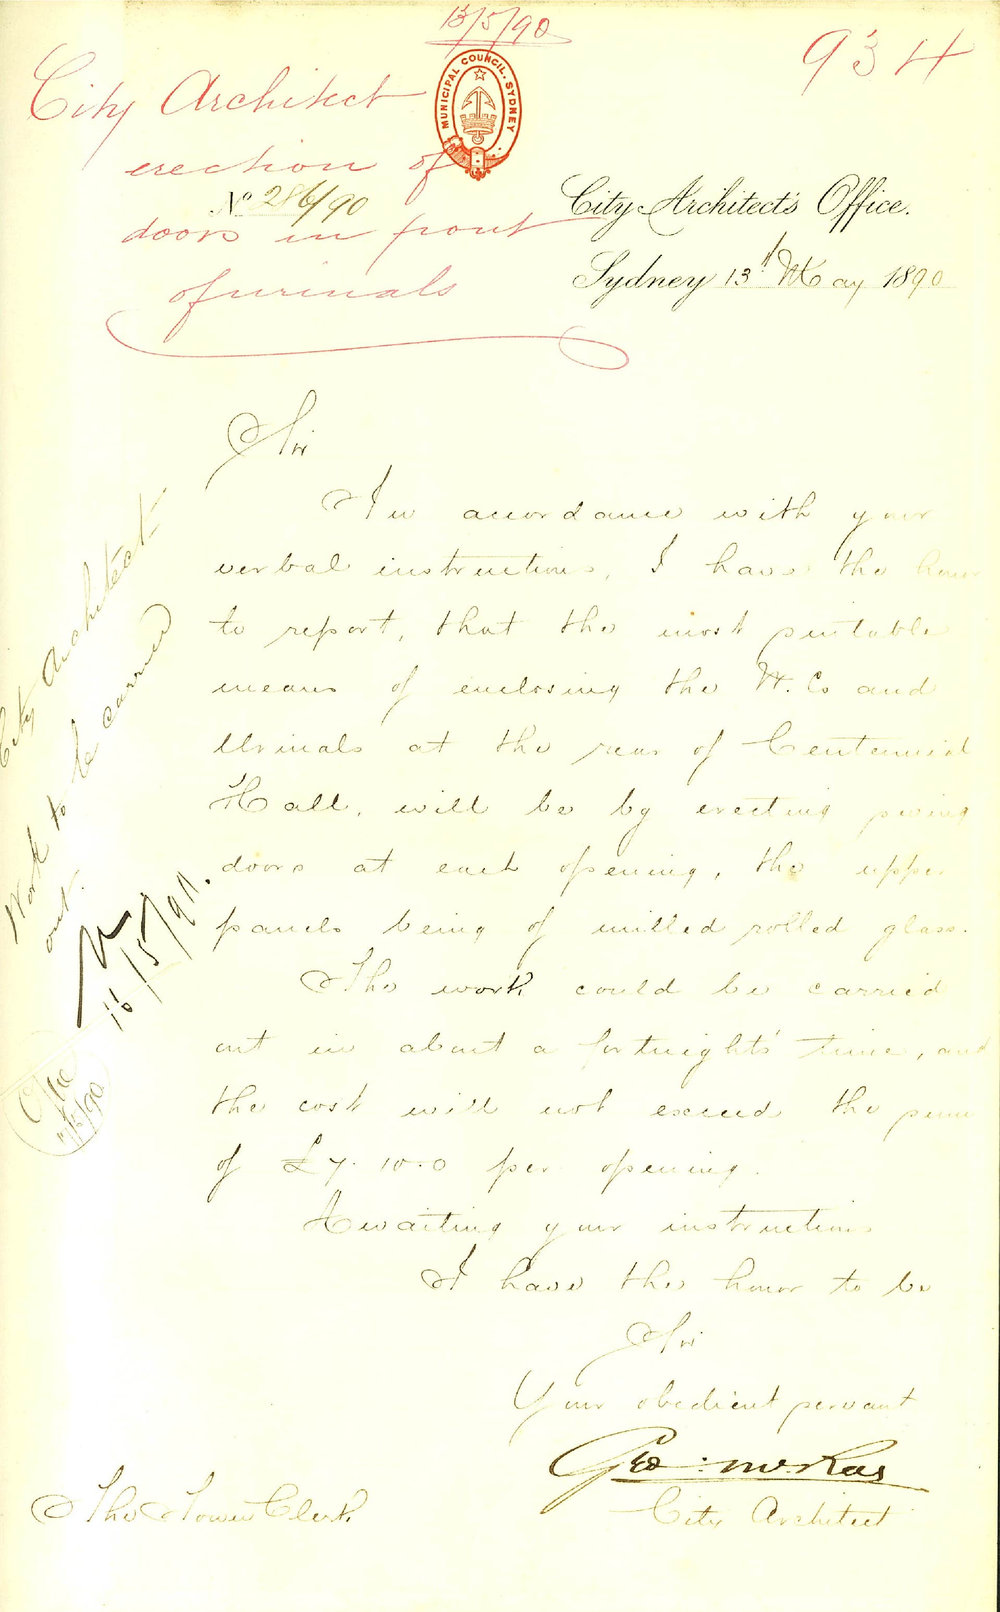 13/5/90
934
City Architect
erection of
doors in front
of urinals
MUNICIPAL COUNCIL. SYDNEY
No 286/90
City Architect's Office.
Sydney 13th May 1890
Sir
In accordance with your
verbal instructions, I have the honor
to report, that the most suitable
means of enclosing the W.Cs and
Urinals at the rear of Centennial
Hall, will be by erecting swing
doors at each opening, the upper
panels being of milled rolled glass.
The work could be carried
out in about a fortnight's time, and
the cost will not exceed the sum
of £7.10.0 per opening.
Awaiting your instructions
I have the honor to be
Sir
Your obedient servant
Geo: McRae
City Architect
The Town Clerk
City Architect
Work to be carried
out.
16/5/90.